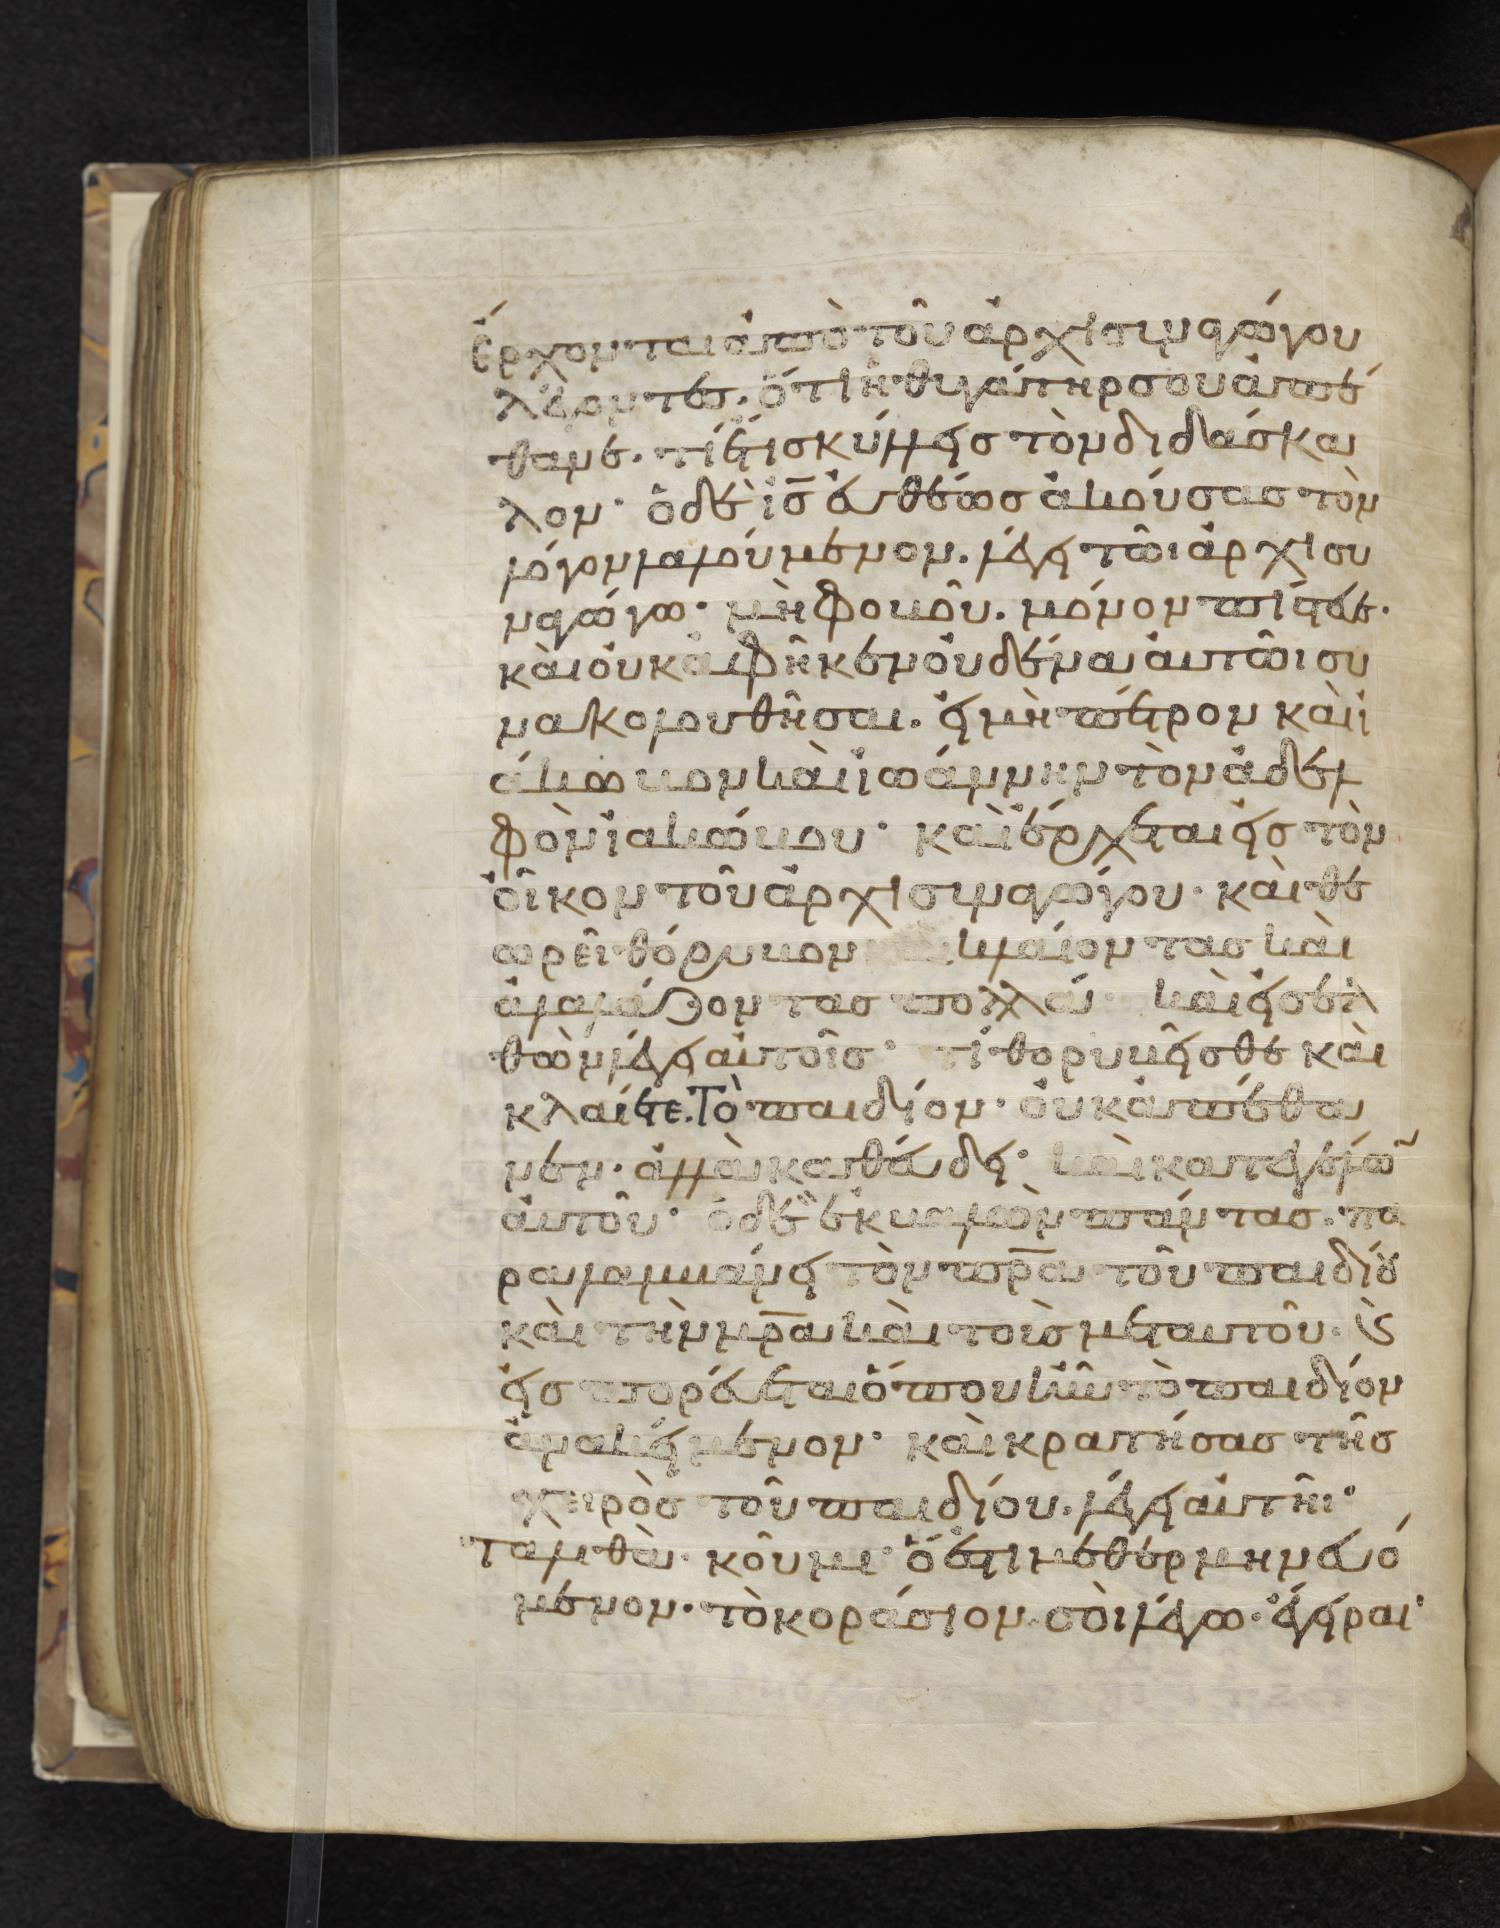 ἔρχονται ἀπὸ τοῦ ἀρχισυναγώγου
λέγοντες. ὅτι ἡ θυγάτηρ σου ἀπέ
θανε. τί ἔτι σκύλλεις τὸν διδάσκα
λον· ὁ δὲ ἰς̅ εὐθέως ἀκούσας τὸν
λόγον λαλούμενον. λέγει τῶι ἀρχισυ
ναγώγω· μὴ φοβοῦ. μόνον πίστευε.
καὶ οὐκ ἀφῆκεν οὐδένα αὐτῶι συ
νακολουθῆσαι. εἰ μὴ πέτρον καὶ ἰ
άκωβον καὶ ἰωάννην τὸν ἀδελ
φὸν ἰακώβου· καὶ ἔρχεται εἰς τὸν
οἶκον τοῦ ἀρχισυναγώγου· καὶ θε
ωρεῖ θόρυβον κλαίοντας καὶ
ἀλαλάζοντας πολλά· καὶ εἰσελ
θὼν λέγει αὐτοῖς· τί θορυβεῖσθε καὶ
κλαίετε. Τὸ παιδίον· οὐκ ἀπέθα
νεν. ἀλλὰ καθεύδει· καὶ κατεγέλω̅
αὐτοῦ· ὁ δὲ ἐκβαλὼν πάντας. πα
ραλαμβάνει τὸν πρ̅α τοῦ παιδίου
καὶ τὴν μρ̅α καὶ τοὺς μετ αὐτοῦ. ϗ
εἰσπορεύεται ὅπου ἦν τὸ παιδίον
ἀνακείμενον· καὶ κρατήσας τῆς
χειρὸς τοῦ παιδίου. λέγει αὐτῆι·
ταλιθὰ· κοῦμι· ὅ ἐστι μεθερμηνευό
μενον. τὸ κοράσιον σοὶ λέγω. ἔγειραι·